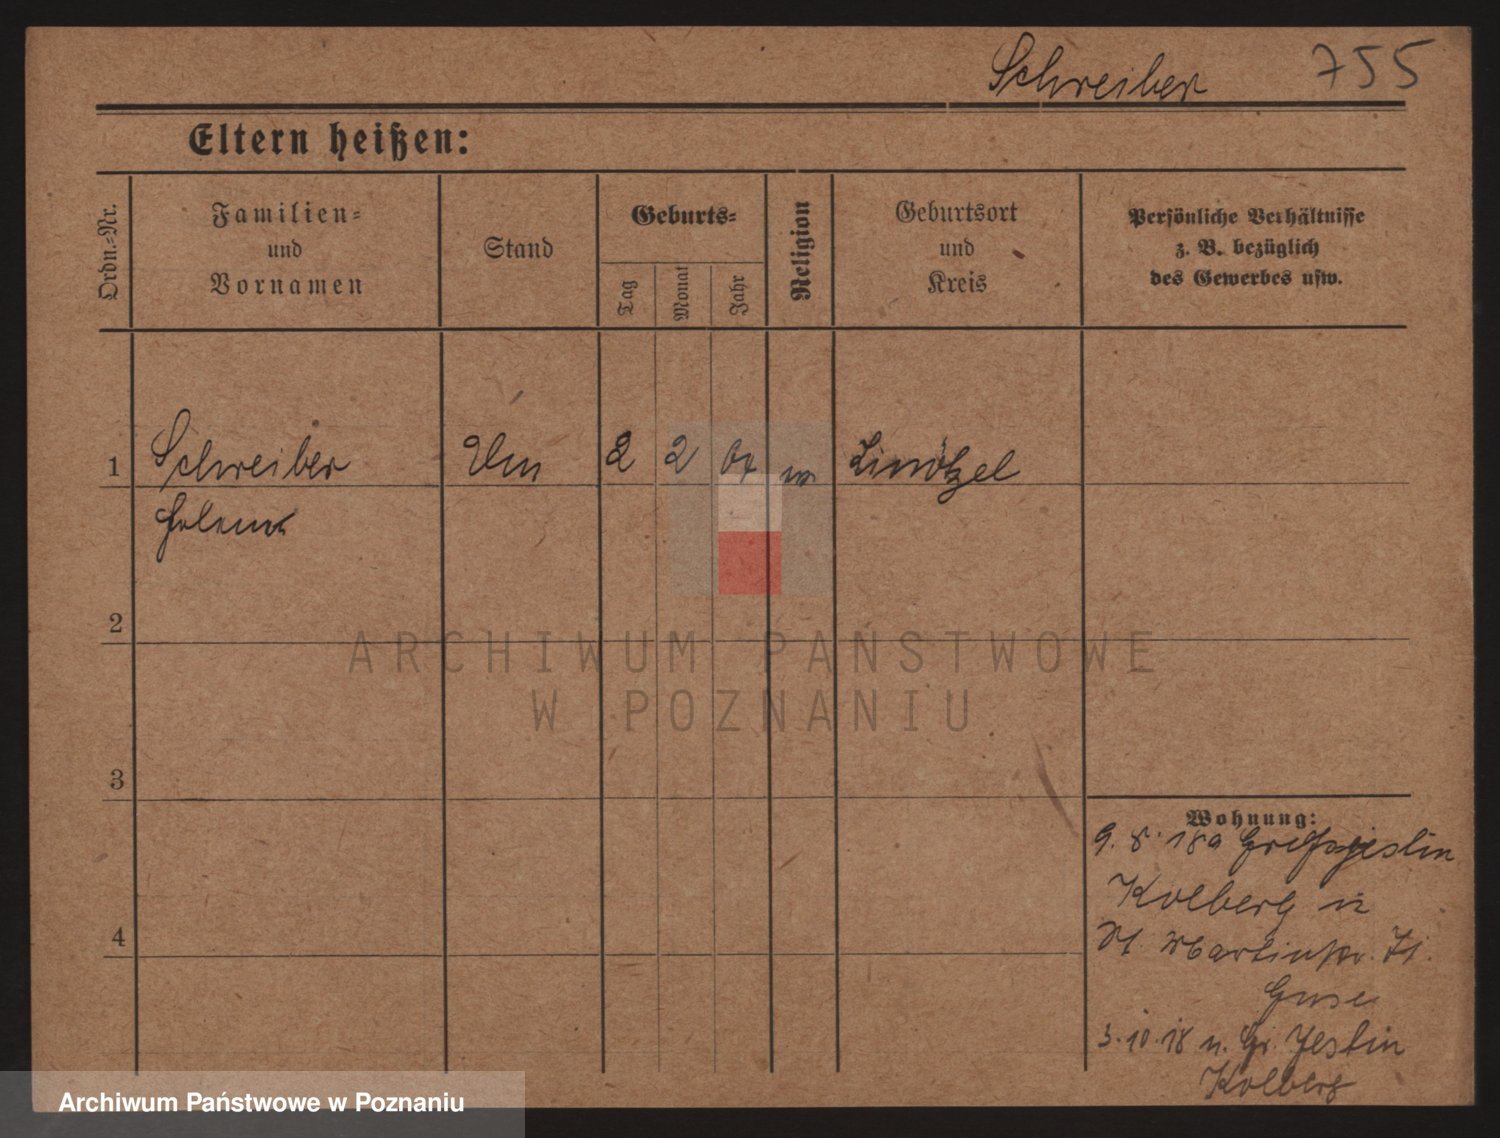 Schreiber 755
Eltern heißen:
Ordn.=Nr.
Familien=
und
Vornamen
Stand
Geburts=
Tag
Monat
Jahr
Religion
Geburtsort
und
Kreis
Persönliche Verhältnisse
z. B. bezüglich
des Gewerbes usw.
1 Schreiber 2 2
Helene
2
ARCHIWUM PAŃSTWOWE
W POZNANIU
3
Wohnung:
9. 8. 18
Kolberg
4
St. Martinstr.
Guse
3.10.18 n. Gr. Jestin
Kolberg
Archiwum Państwowe w Poznaniu